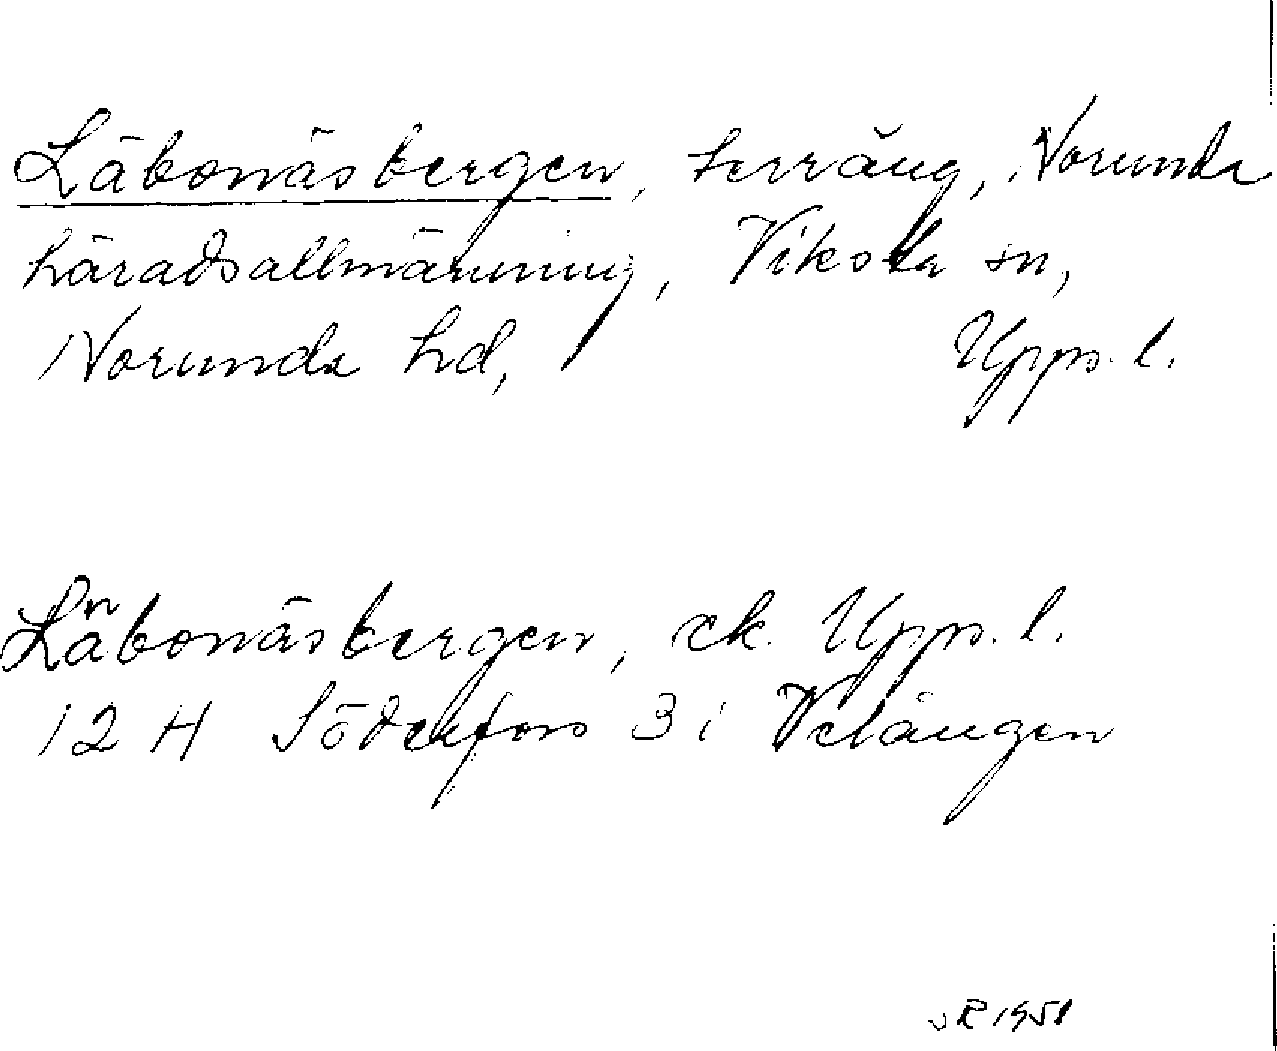 Läbonäsbergen, terräng, Norunda
häradsallmänning, Viksta sn,
Norunda hd, Upps. l.
Läbonäsbergen, ek. Upps. l.
12 H Söderfors 3 i Velängen
JR 1951